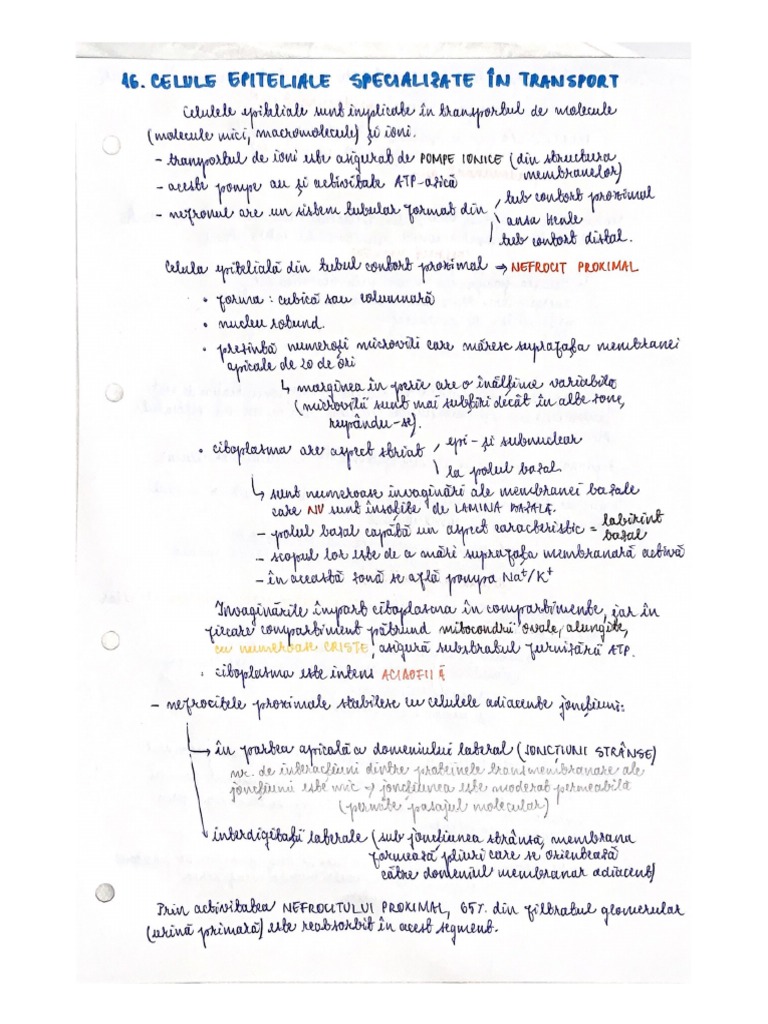 16. CELULE EPITELIALE SPECIALIZATE ÎN TRANSPORT
Celulele epiteliale sunt implicate în transportul de molecule
(molecule mici, macromolecule) și ioni.
- transportul de ioni este asigurat de POMPE IONICE (din structura
membranelor)
- aceste pompe au și activitate ATP-azică
- nefronul are un sistem tubular format din / tub contort proximal
ansa Henle
tub contort distal.
Celula epitelială din tubul contort proximal → NEFROCIT PROXIMAL
• forma: cubică sau columnară
• nucleu rotund.
• prezintă numeroși microvili care măresc suprafața membranei
apicale de 20 de ori
↳ marginea în perie are o înălțime variabilă
(microvilii sunt mai subțiri decât în alte zone,
rupându-se).
• citoplasma are aspect striat / epi- și subnuclear
\ la polul bazal.
↳ sunt numeroase invaginări ale membranei bazale
care NU sunt însoțite de LAMINA BAZALĂ.
- polul bazal capătă un aspect caracteristic = labirint
bazal
- scopul lor este de a mări suprafața membranară activă
- în această zonă se află pompa Na⁺/K⁺
Invaginările împart citoplasma în compartimente, iar în
fiecare compartiment pătrund mitocondrii ovale, alungite,
cu numeroase CRISTE, asigură substratul furnizării ATP.
• citoplasma este intens ACIDOFILĂ
- nefrocitele proximale stabilesc cu celulele adiacente joncțiuni:
→ în partea apicală a domeniului lateral (JONCȚIUNI STRÂNSE)
nr. de interacțiuni dintre proteinele transmembranare ale
joncțiunii este mic → joncțiunea este moderat permeabilă
(permite pasajul molecular)
interdigitații laterale (sub joncțiunea strânsă, membrana
formează pliuri care se orientează
către domeniul membranar adiacent)
Prin activitatea NEFROCITULUI PROXIMAL, 65% din filtratul glomerular
(urină primară) este reabsorbit în acest segment.